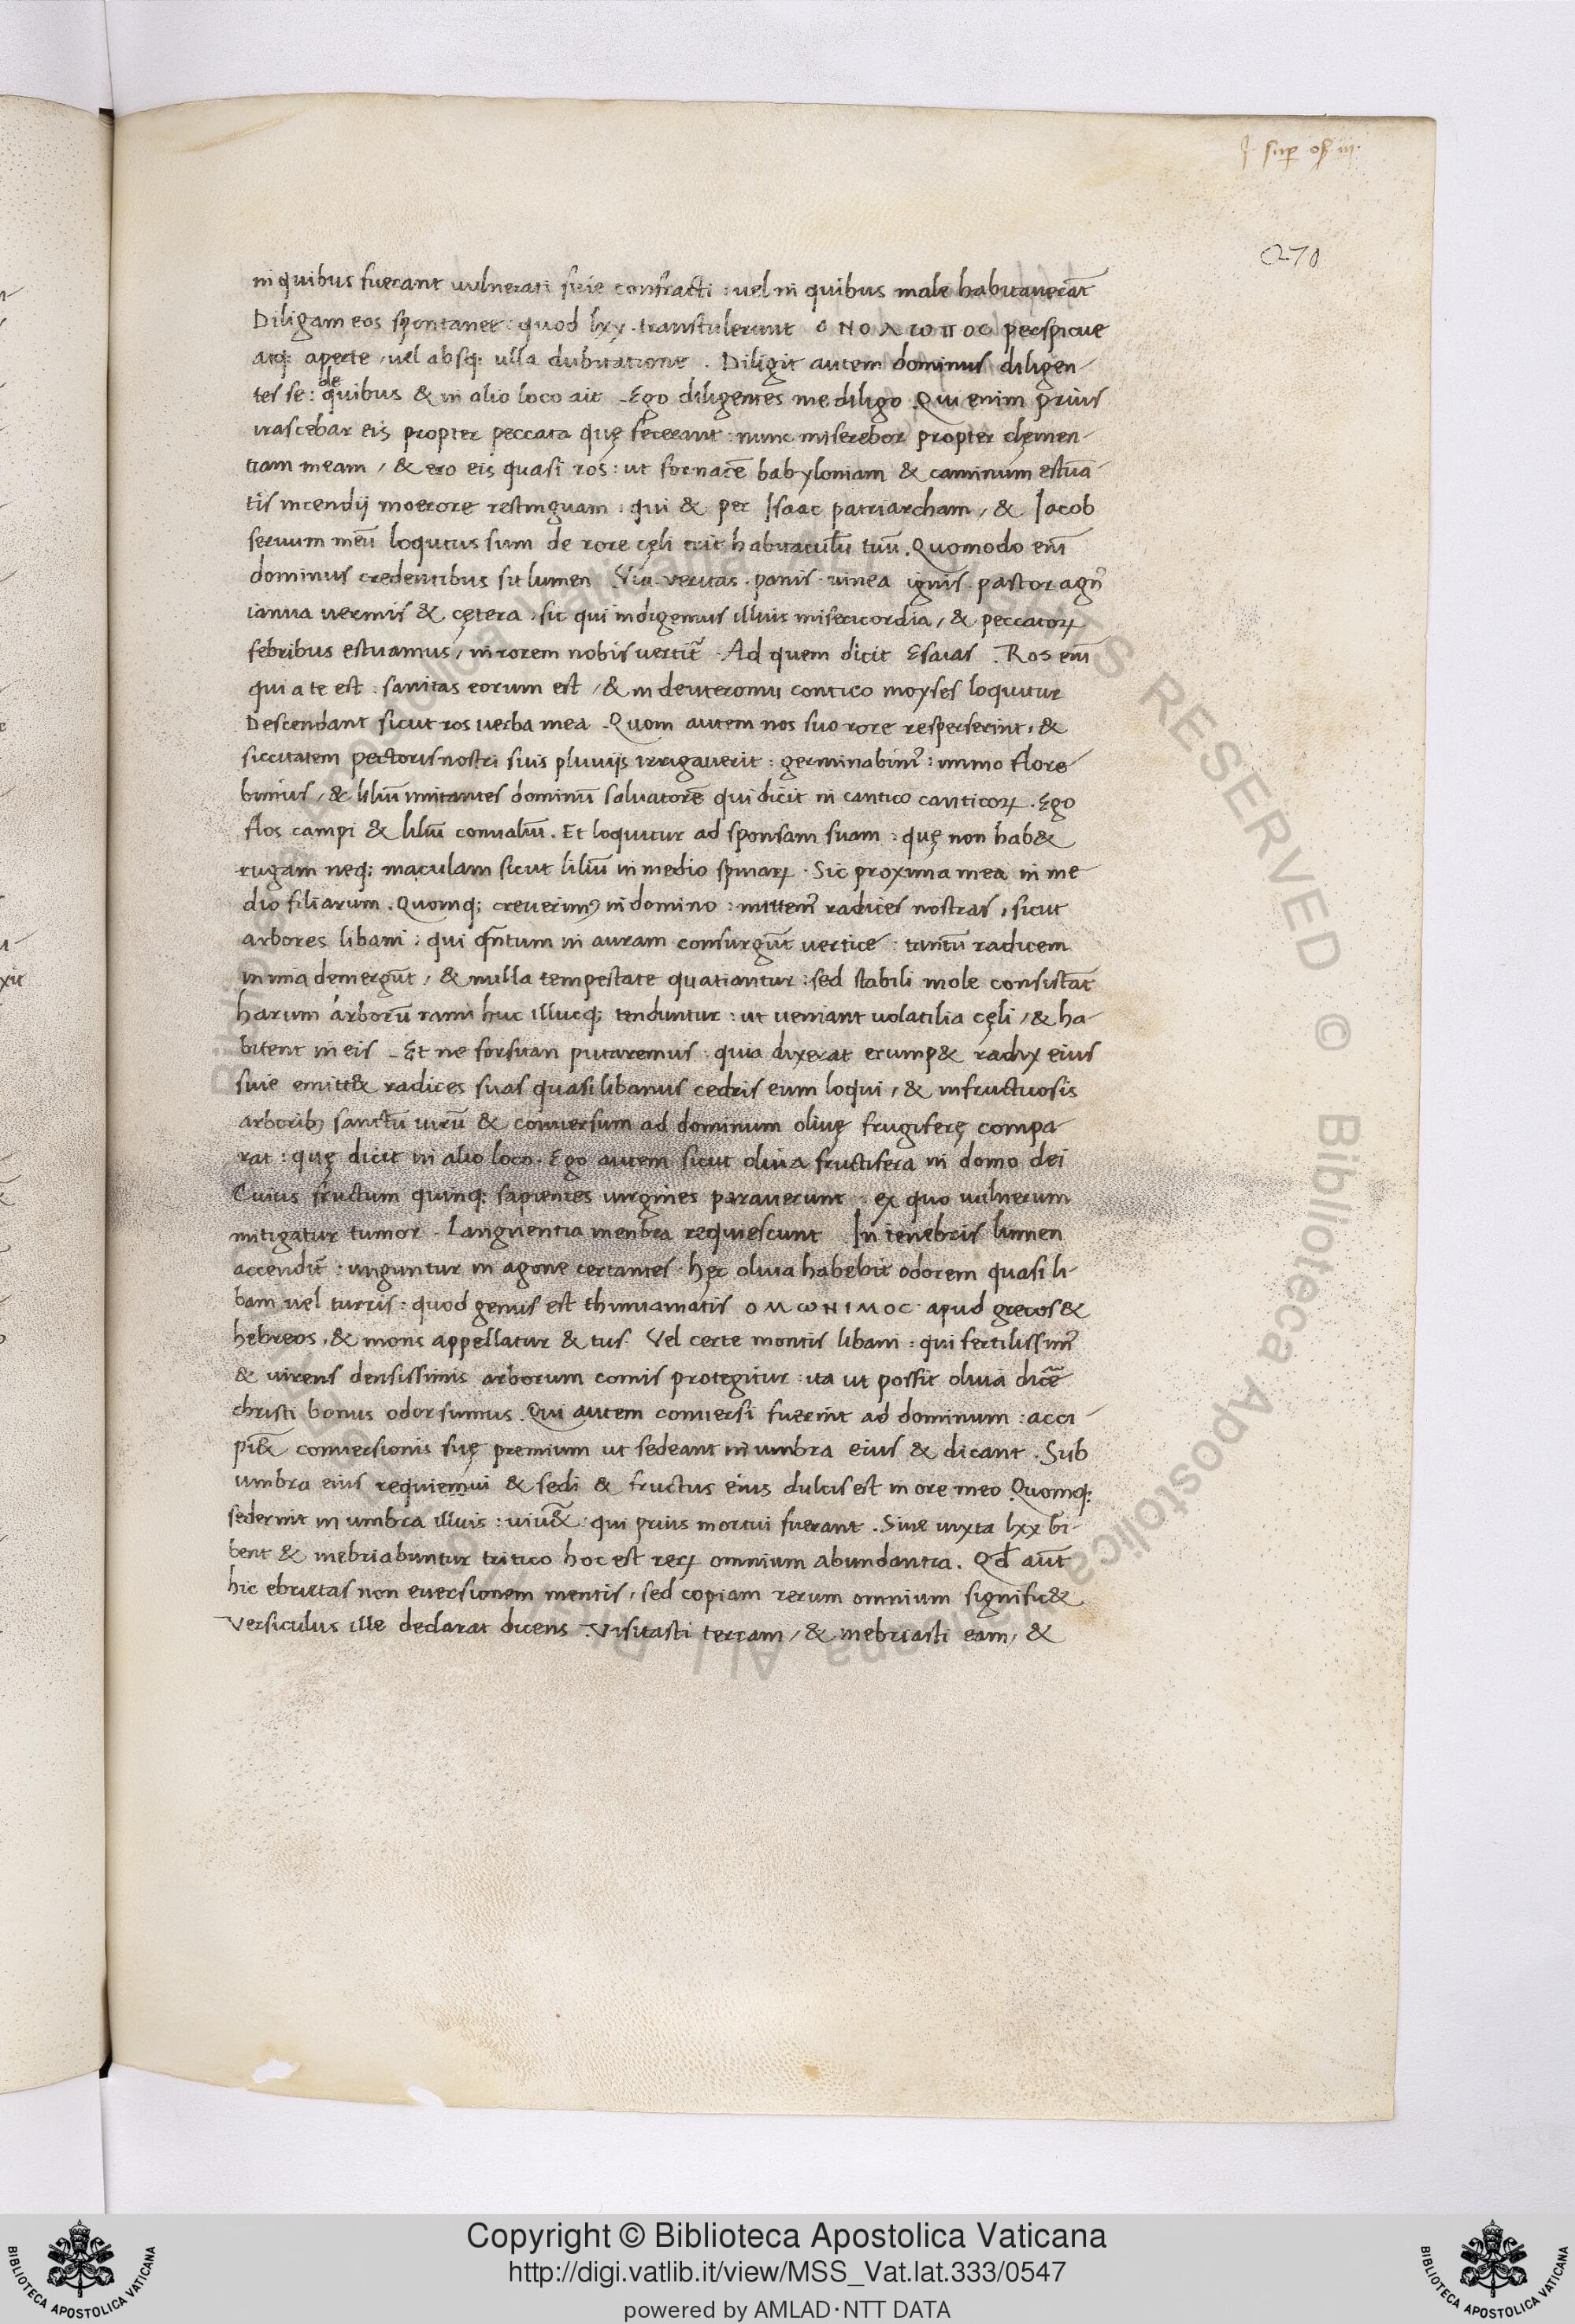 I sup os iii.
270
in quibus fuerant uulnerati siue confracti : uel in quibus male habitauerāt
Diligam eos spontanee : quod lxx . transtulerunt Ο Μ Ο Λ Ω Π Ο C perspicue
atq; aperte / uel absq; ulla dubitatione . Diligit autem dominus diligen-
tes se : de quibus & in alio loco ait . Ego diligentes me diligo . Qui enim prius
irascebar eis propter peccata quę fecerant : nunc miserebor propter clęmen-
tiam meam / & ero eis quasi ros : ut fornacē babyloniam & caminum estua-
tis incendij moerore restinguam : qui & per Isaac patriarcham / & Iacob
seruum meū loqutus sum de rore cęli erit habitaculū tuū . Quomodo em̄
dominus credentibus sit lumen Via . ueritas . panis . uinea ignis . pastor agn᷒
ianua uermis & cętera . sic qui indigemus illius misericordia / & peccatoꝝ
febribus estuamus / in rorem nobis uertit᷑ . Ad quem dicit Esaias . Ros em̄
qui a te est : sanitas eorum est / & in deuteromii contico moyses loquitur
Descendant sicut ros uerba mea . Quom autem nos suo rore resperserint , &
siccitatem pectoris nostri suis pluuijs irrigauerit : germinabim᷒ : immo flore
bimus / & liliū imitantes dominū saluatorē qui dicit in cantico canticoꝝ . Ego
flos campi & liliū conualiū . Et loquitur ad sponsam suam : quę non hab&
rugam neq; maculam sicut liliū in medio spinaꝝ . Sic proxima mea in me
dio filiarum . Quomq; creuerimꝰ in domino : mittem᷒ radices nostras , sicut
arbores libani : qui qn̄tum in auram consurgūt uertice : tantū radicem
in ima demergūt / & nulla tempestate quatiantur : sed stabili mole consistāt
harum arborū rami huc illucq; tenduntur : ut ueniant uolatilia cęli / & ha-
bitent in eis . Et ne forsitan putaremus . quia dixerat erump& radix eius
siue emitt& radices suas quasi libanus cedris eum loqui / & infructuosis
arboribꝰ sanctū uirū & conuersum ad dominum oliuę frugiferę compa
rat : quę dicit in alio loco . Ego autem sicut oliua fructifera in domo dei
Cuius fructum quinq; sapientes uirgines parauerunt . ex quo uulnerum
mitigatur tumor . Languentia menbra requiescunt In tenebris lumen
accendit᷑ : unguntur in agone certantes . hęc oliua habebit odorem quasi li-
bani uel turris : quod genus est thimiamatis Ο Μ Ω Ν Ι Μ Ο C apud grecos &
hebreos , & mons appellatur & tus . Vel certe montis libani : qui fertilissim᷒
& uirens densissimis arborum comis protegitur : ita ut possit oliua dicē
christi bonus odor sumus . Qui autem conuersi fuerint ad dominum : acci-
pi&̄ conuersionis suę premium ut sedeant in umbra eius & dicant . Sub
umbra eius requieuiui & sedi & fructus eius dulcis est in ore meo . Quomq;
sederint in umbra illius : uiu&̄ : qui prius mortui fuerant . Siue iuxta lxx bi-
bent & inebriabuntur tritico hoc est reꝝ omnium abundantia . Qd̄ aūt
hic ebrietas non euersionem mentis , sed copiam rerum omnium signific&
Versiculus ille declarat dicens . Visitasti terram / & inebriasti eam / &
Copyright © Biblioteca Apostolica Vaticana
http://digi.vatlib.it/view/MSS_Vat.lat.333/0547
powered by AMLAD·NTT DATA
BIBLIOTECA APOSTOLICA VATICANA
BIBLIOTECA APOSTOLICA VATICANA